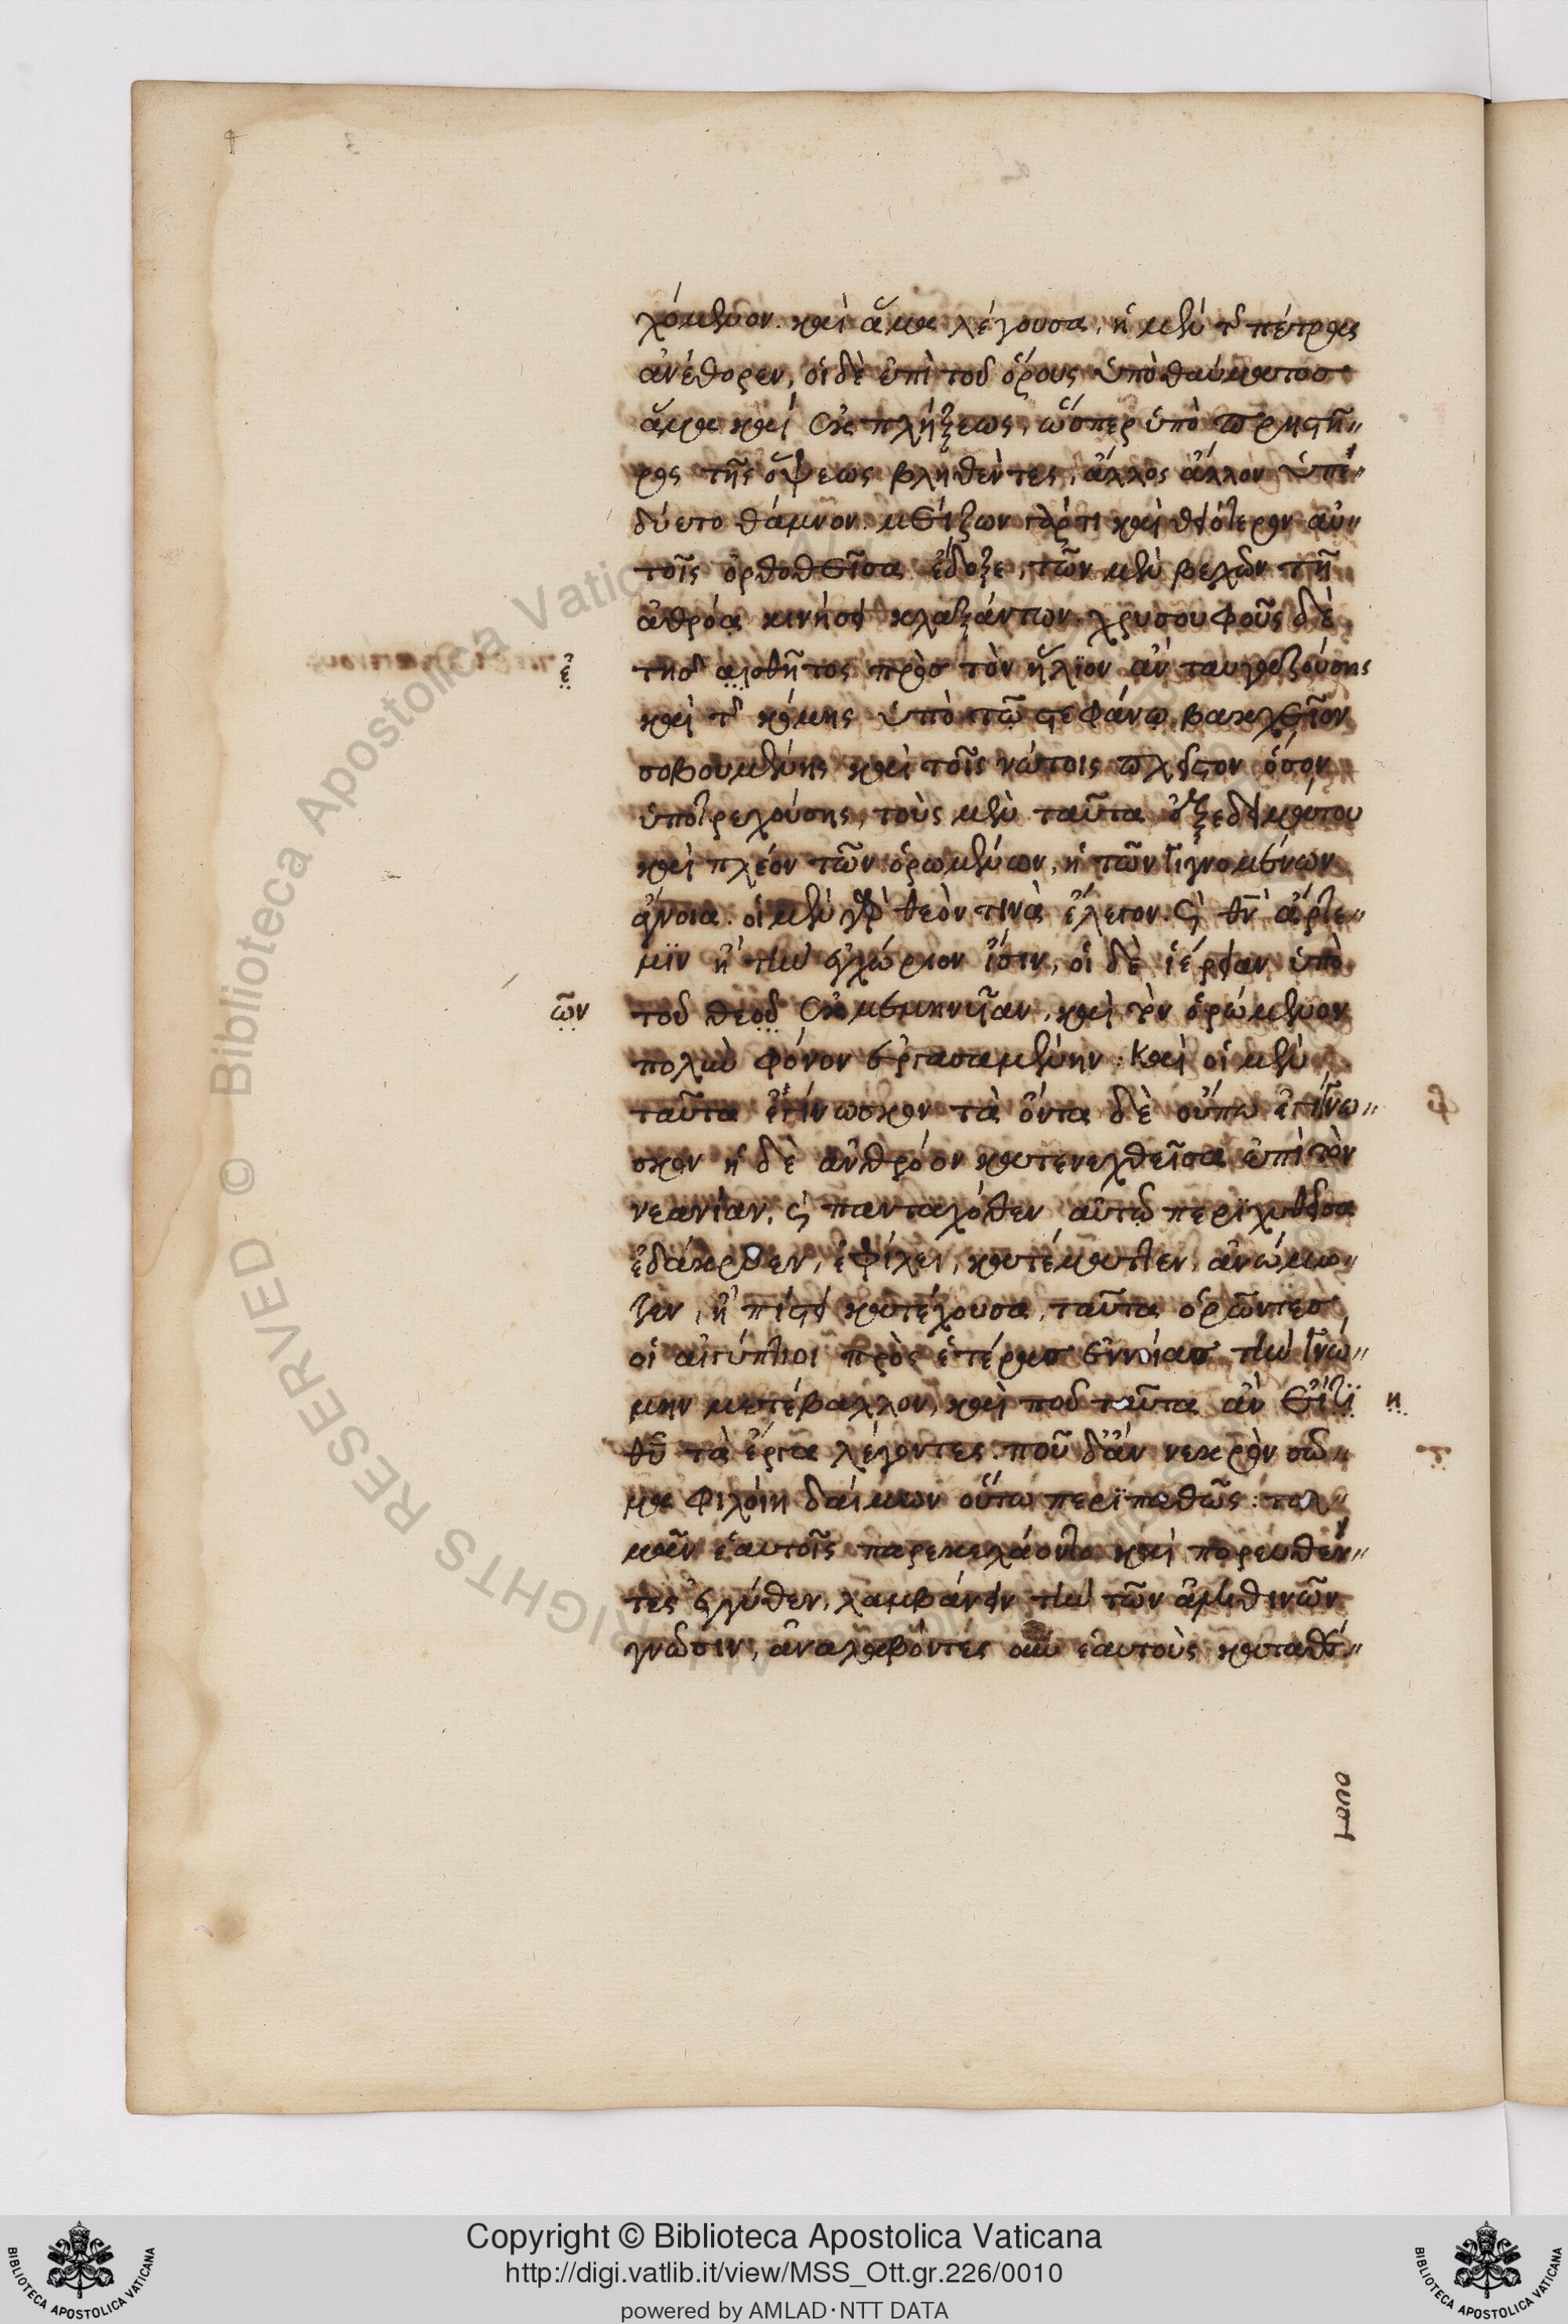 χόμενον. καὶ ἅμα λέγουσα, ἡ μὲν τῆς πέτρας
ἀνέθορεν, οἱ δὲ ἐπὶ τοῦ ὄρους ὑπὸ θαύματος
ἅμα καὶ ἐκπλήξεως, ὥσπερ ὑπὸ πρηστῆ〃
ρος τῆς ὄψεως βληθέντες, ἄλλος ἄλλον ὑπε〃
δύετο θάμνον. μείζων γάρ τι καὶ θειότερον αὐ〃
τοῖς ὀρθοθεῖσα ἔδοξε, τῶν μὲν βελῶν τῇ
ἀθρόα κινήσει κλαξάντων. χρυσουφοῦς δὲ
τῆς αἰσθῆτος πρὸς τὸν ἥλιον ἀνταυγαζούσης
ἐ
καὶ τῆς κόμης ὑπὸ τῷ στεφάνῳ βακχεῖον
σοβουμένης καὶ τοῖς νώτοις πλεῖστον ὅσον
ὑποτρεχούσης, τοὺς μὲν ταῦτα ἐξεδειμάτου
καὶ πλέον τῶν ὁρωμένων, ἡ τῶν γιγνομένων
ἄγνοια. οἱ μὲν γὰρ θεὸν τινὰ ἔλεγον. καὶ θν̄ ἄρτε〃
μιν ἢ τὴν ἐγχώριον ἶσιν, οἱ δὲ ἱέρειαν ὑπὸ
τοῦ θεοῦ ἐκμεμηνυῖαν, καὶ τὸν ὁρώμενον
ῶν
πολὺν φόνον ἐργασαμένην: καὶ οἱ μὲν
ταῦτα ἐγίνωσκον τὰ ὄντα δὲ οὔπω ἐγίνω〃
σκον ἡ δὲ ἀνθρόον κατενεχθεῖσα ἐπὶ τὸν
νεανίαν, καὶ πανταχόθεν αὐτῷ περιχυθεῖσα
ἐδάκρυεν, ἐφίλει, κατέματτεν, ἀνώμω〃
ζεν, ἠπίστει κατέχουσα, ταῦτα ὁρῶντες
οἱ αἰγύπτιοι πρὸς ἑτέρας ἐννοίας τὴν γνώ〃
μην μετέβαλλον, καὶ ποῦ ταῦτα ἂν εἴη
η
θῦ τὰ ἔργα λέγοντες. ποῦ δ' ἂν νεκρὸν σῶ〃
μα φιλοίη δαίμων οὕτω περιπαθῶς: τολ〃
μᾶν ἑαυτοῖς παρεκελάοντο καὶ πορευθέν〃
τες ἐγγύθεν, λαμβάνειν τὴν τῶν ἀληθινῶν
γνῶσιν, ἀναλαβόντες οὖν ἑαυτοὺς καταθέ〃
ουσι
Copyright © Biblioteca Apostolica Vaticana
http://digi.vatlib.it/view/MSS_Ott.gr.226/0010
powered by AMLAD·NTT DATA